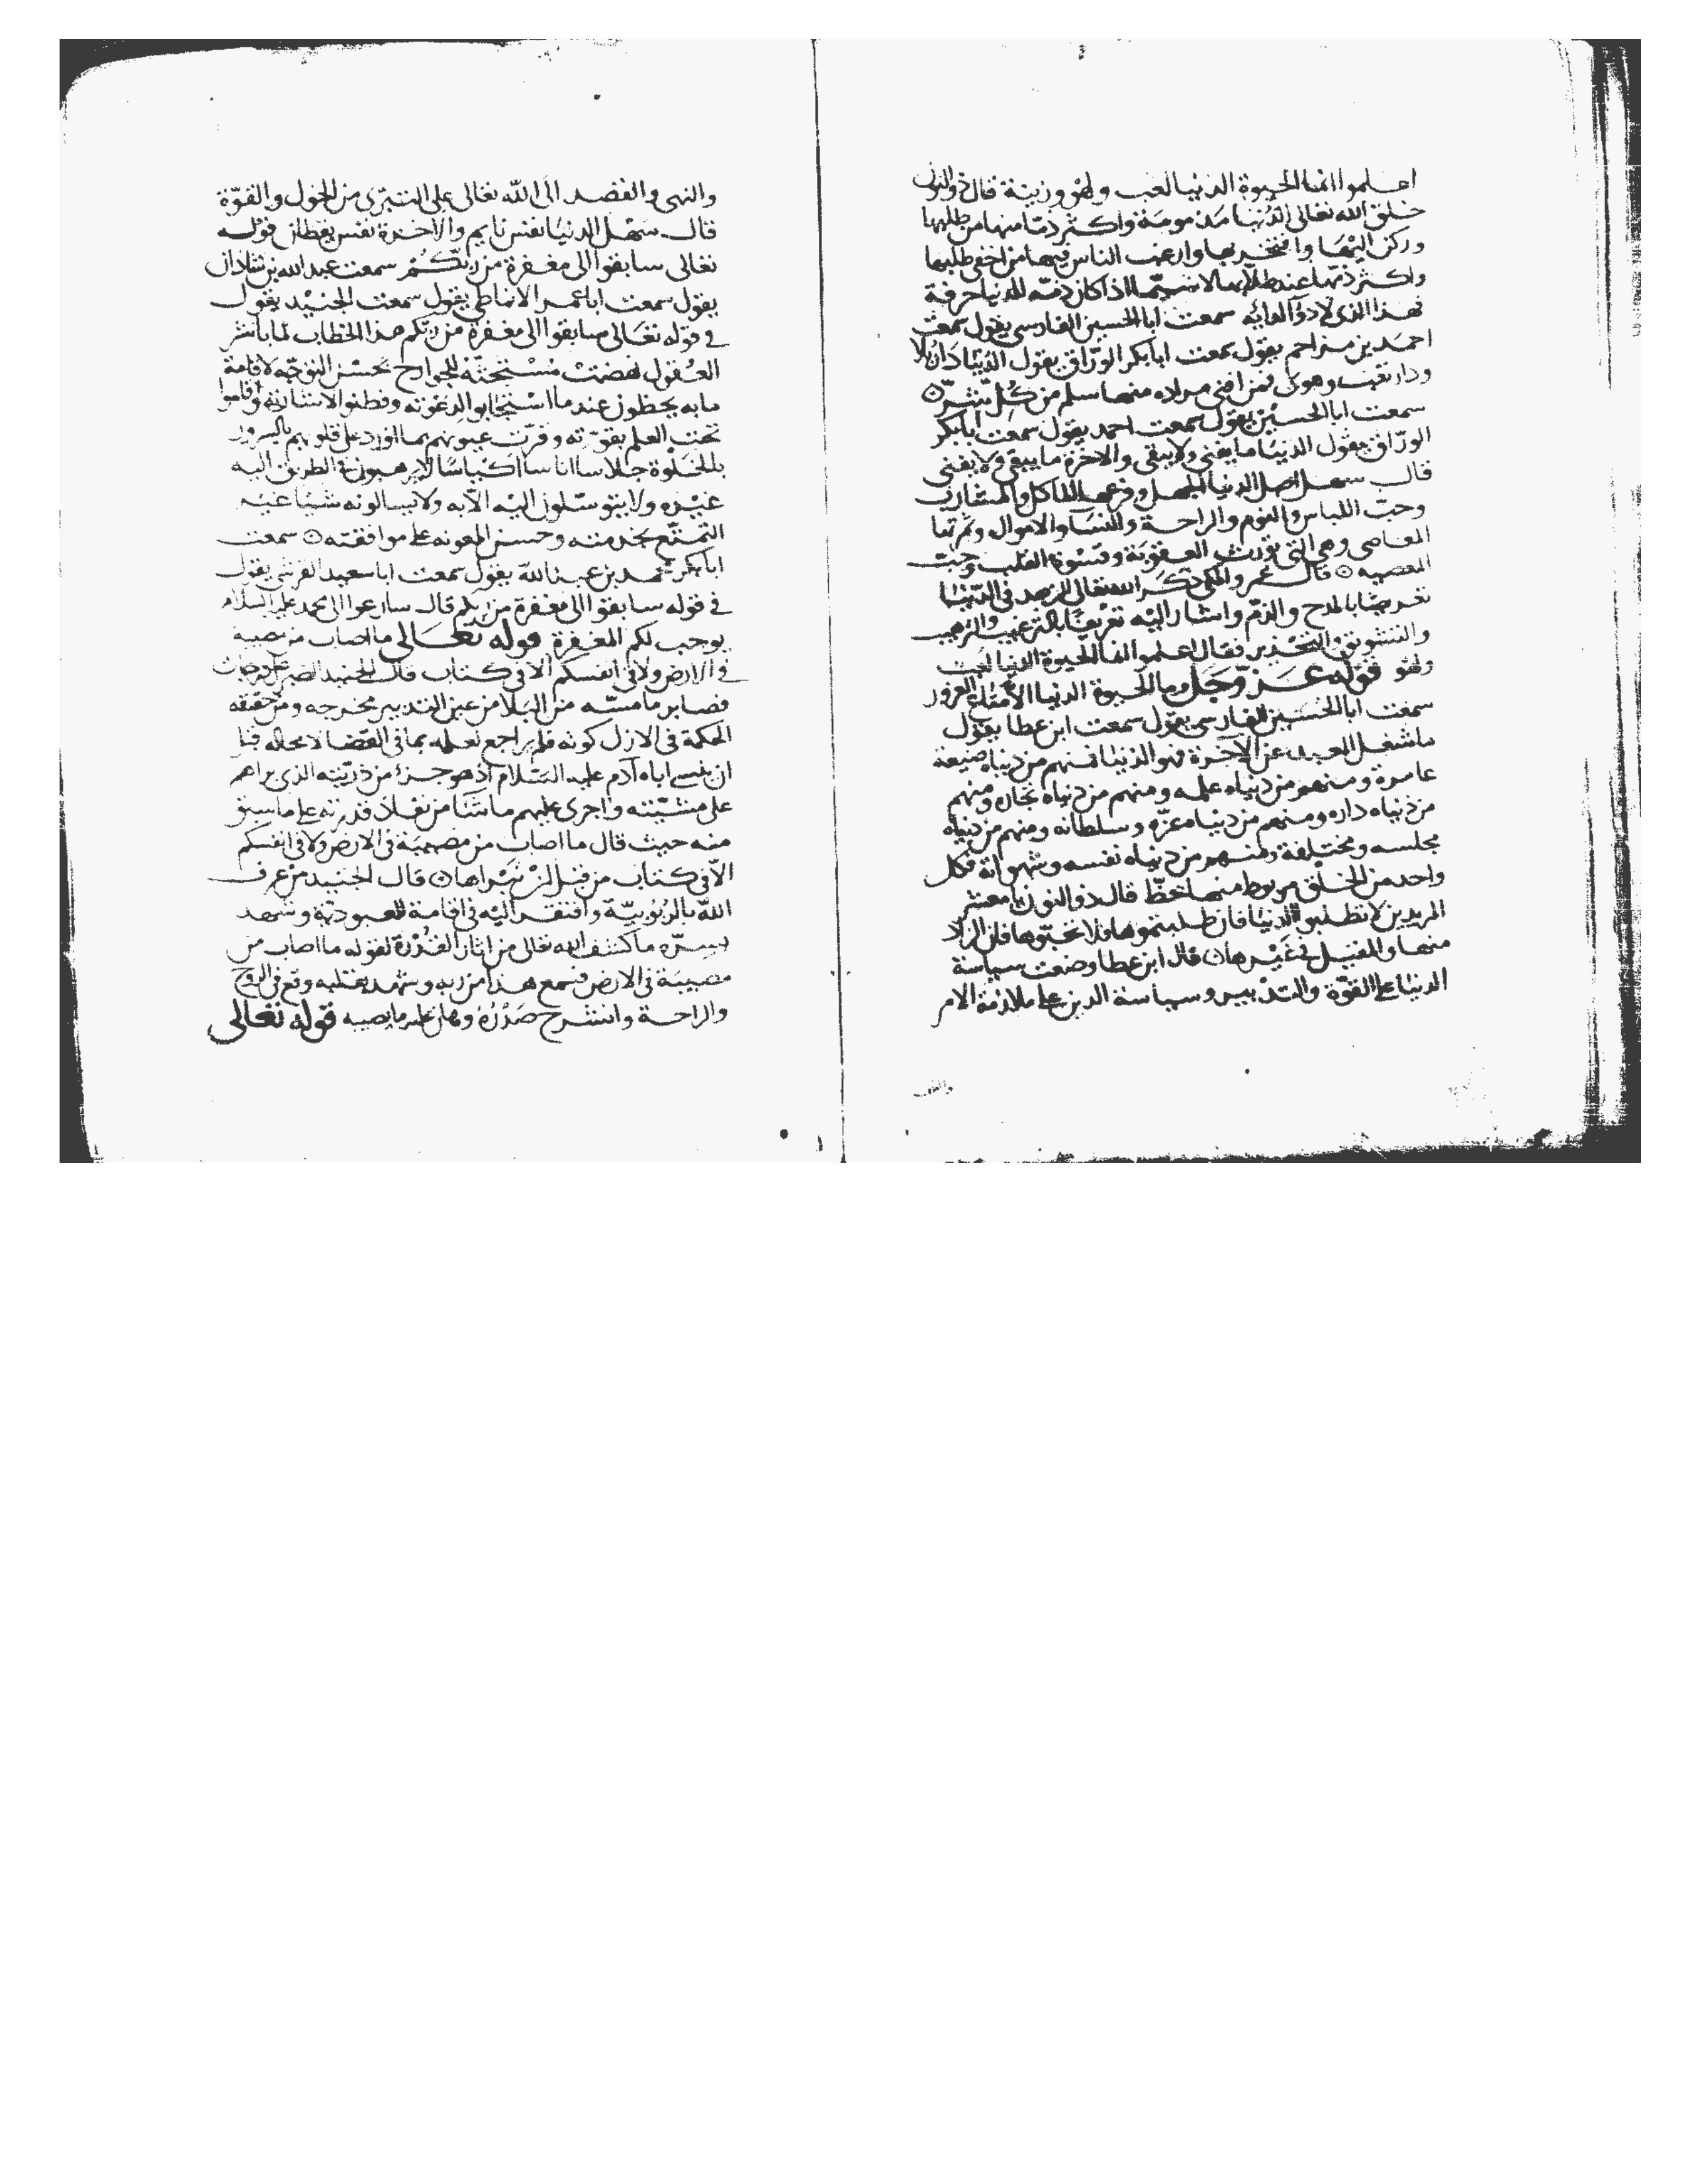 اعلموا انما الحيوة الدنيا لعب ولهو وزينة قال ذو النون
خلق الله تعالى الدنيا مذمومة واكثر ذما منها من طلبها
وركن اليها وافتخر بها وارغب الناس فيها من اخفى طلبها
واكثر ذمها عند طلابها لا سيما اذا كان ذمه للدنيا حرفة
فهذا الذي لا دوآ لدايه سمعت ابا الحسين الفارسي يقول سمعت
احمد بن مزاحم يقول سمعت ابا بكر الوراق يقول الدنيا دار بلا
ودار تعب وهوى فمن افنى مراده منها سلم من كل شر ۞
سمعت ابا الحسين يقول سمعت احمد يقول سمعت ابا بكر
الوراق يقول الدنيا ما يفنى ولا يبقى والاخرة ما يبقى ولا يفنى
قال سهل اصل الدنيا الجهل وفرعها الماكل والمشارب
وحب اللباس والنوم والراحة والنسا والاموال وثمرتها
المعاصى وهي التي تورث العقوبة وقسوة القلب وحب
المعصيه ۞ قال عمرو المكي ذكر الله تعالى الزهد في الدنيا
تعريضا بالمدح والذم واشار اليه تعريفا بالترغيب والترهيب
والتشويق والتحذير فقال اعلموا انما الحيوة الدنيا لعب
ولهو قوله عز وجل وما الحيوة الدنيا الا متاع الغرور
سمعت ابا الحسين الفارسي يقول سمعت ابن عطا يقول
ما شغل العبد عن الآخرة فهو الدنيا فمنهم من دنياه ضيعة
عامرة ومنهم من دنياه علمه ومنهم من دنياه تجارة ومنهم
من دنياه داره ومنهم من دنياه عزه وسلطانه ومنهم من دنياه
مجلسه ومختلفة ومنهم من دنياه نفسه وشهواته فكل
واحد من الخلق مربوط منها بحظ قال ذو النون يا معشر
المريدين لا تطلبوا الدنيا فان طلبتموها فلا تحبوها فان الزاد
منها والمقيل في غيرها ۞ قال ابن عطا وضعت سياسة
الدنيا على القوة والتدبير وسياسة الدين على ملازمة الامر
والنهى والقصد الى الله تعالى على التبرى من الحول والقوة
قال سهل الدنيا نفس نايم والاخرة نفس يقظان قوله
تعالى سابقوا الى مغفرة من ربكم سمعت عبد الله بن شاذان
يقول سمعت ابا عمر الانماطي يقول سمعت الجنيد يقول
في قوله تعالى سابقوا الى مغفرة من ربكم هذا الخطاب لما باشر
العقول نهضت مستحثة للجوارح بحسن التوجه لاقامة
ما به يحظون عند ما استجابوا لدعوته وفطنوا لاشارته واقاموا
تحت العلم بقوته وقرت عيونهم بما اورد على قلوبهم بالسرور
بالخلوة جلاسا اناسا اكياسا لا يرهبون في الطريق اليه
غيره ولا يتوسلون اليه الا به ولا يسالونه شيا غير
التمتع بخدمته وحسن المعونه على موافقته ۞ سمعت
ابا بكر محمد بن عبد الله يقول سمعت ابا سعيد القرشي يقول
في قوله سابقوا الى مغفرة من ربكم قال سارعوا الى محمد عليه السلام
يوجب لكم المغفرة قوله تعالى ما اصاب من مصيبة
في الارض ولا في انفسكم الا في كتاب قال الجنيد الصبر على درجات
فصابر ما مسه من البلا من عين التدبير مخرجه ومن حقيقه
الحكمة في الازل كونه فلم يراجع لعلمه بما في القضا لا محاله قبل
ان ينسى اباه آدم عليه السلام اذ هو جزء من ذريته الذي براهم
على مشيته واجرى عليهم ما شا من نفاذ قدرته على ما سبق
منه حيث قال ما اصاب من مصيبة في الارض ولا في انفسكم
الا في كتاب من قبل ان نبراها ۞ قال الجنيد من عرف
الله بالربوبية وافتقر اليه في اقامة العبودية وشهد
بسره ما كشف الله تعالى من اثار القدرة لقوله ما اصاب من
مصيبة في الارض فسمع هذا من ربه وشهد بقلبه وقع في الروح
والراحة وانشرح صدره وهان عليه ما يصيبه قوله تعالى